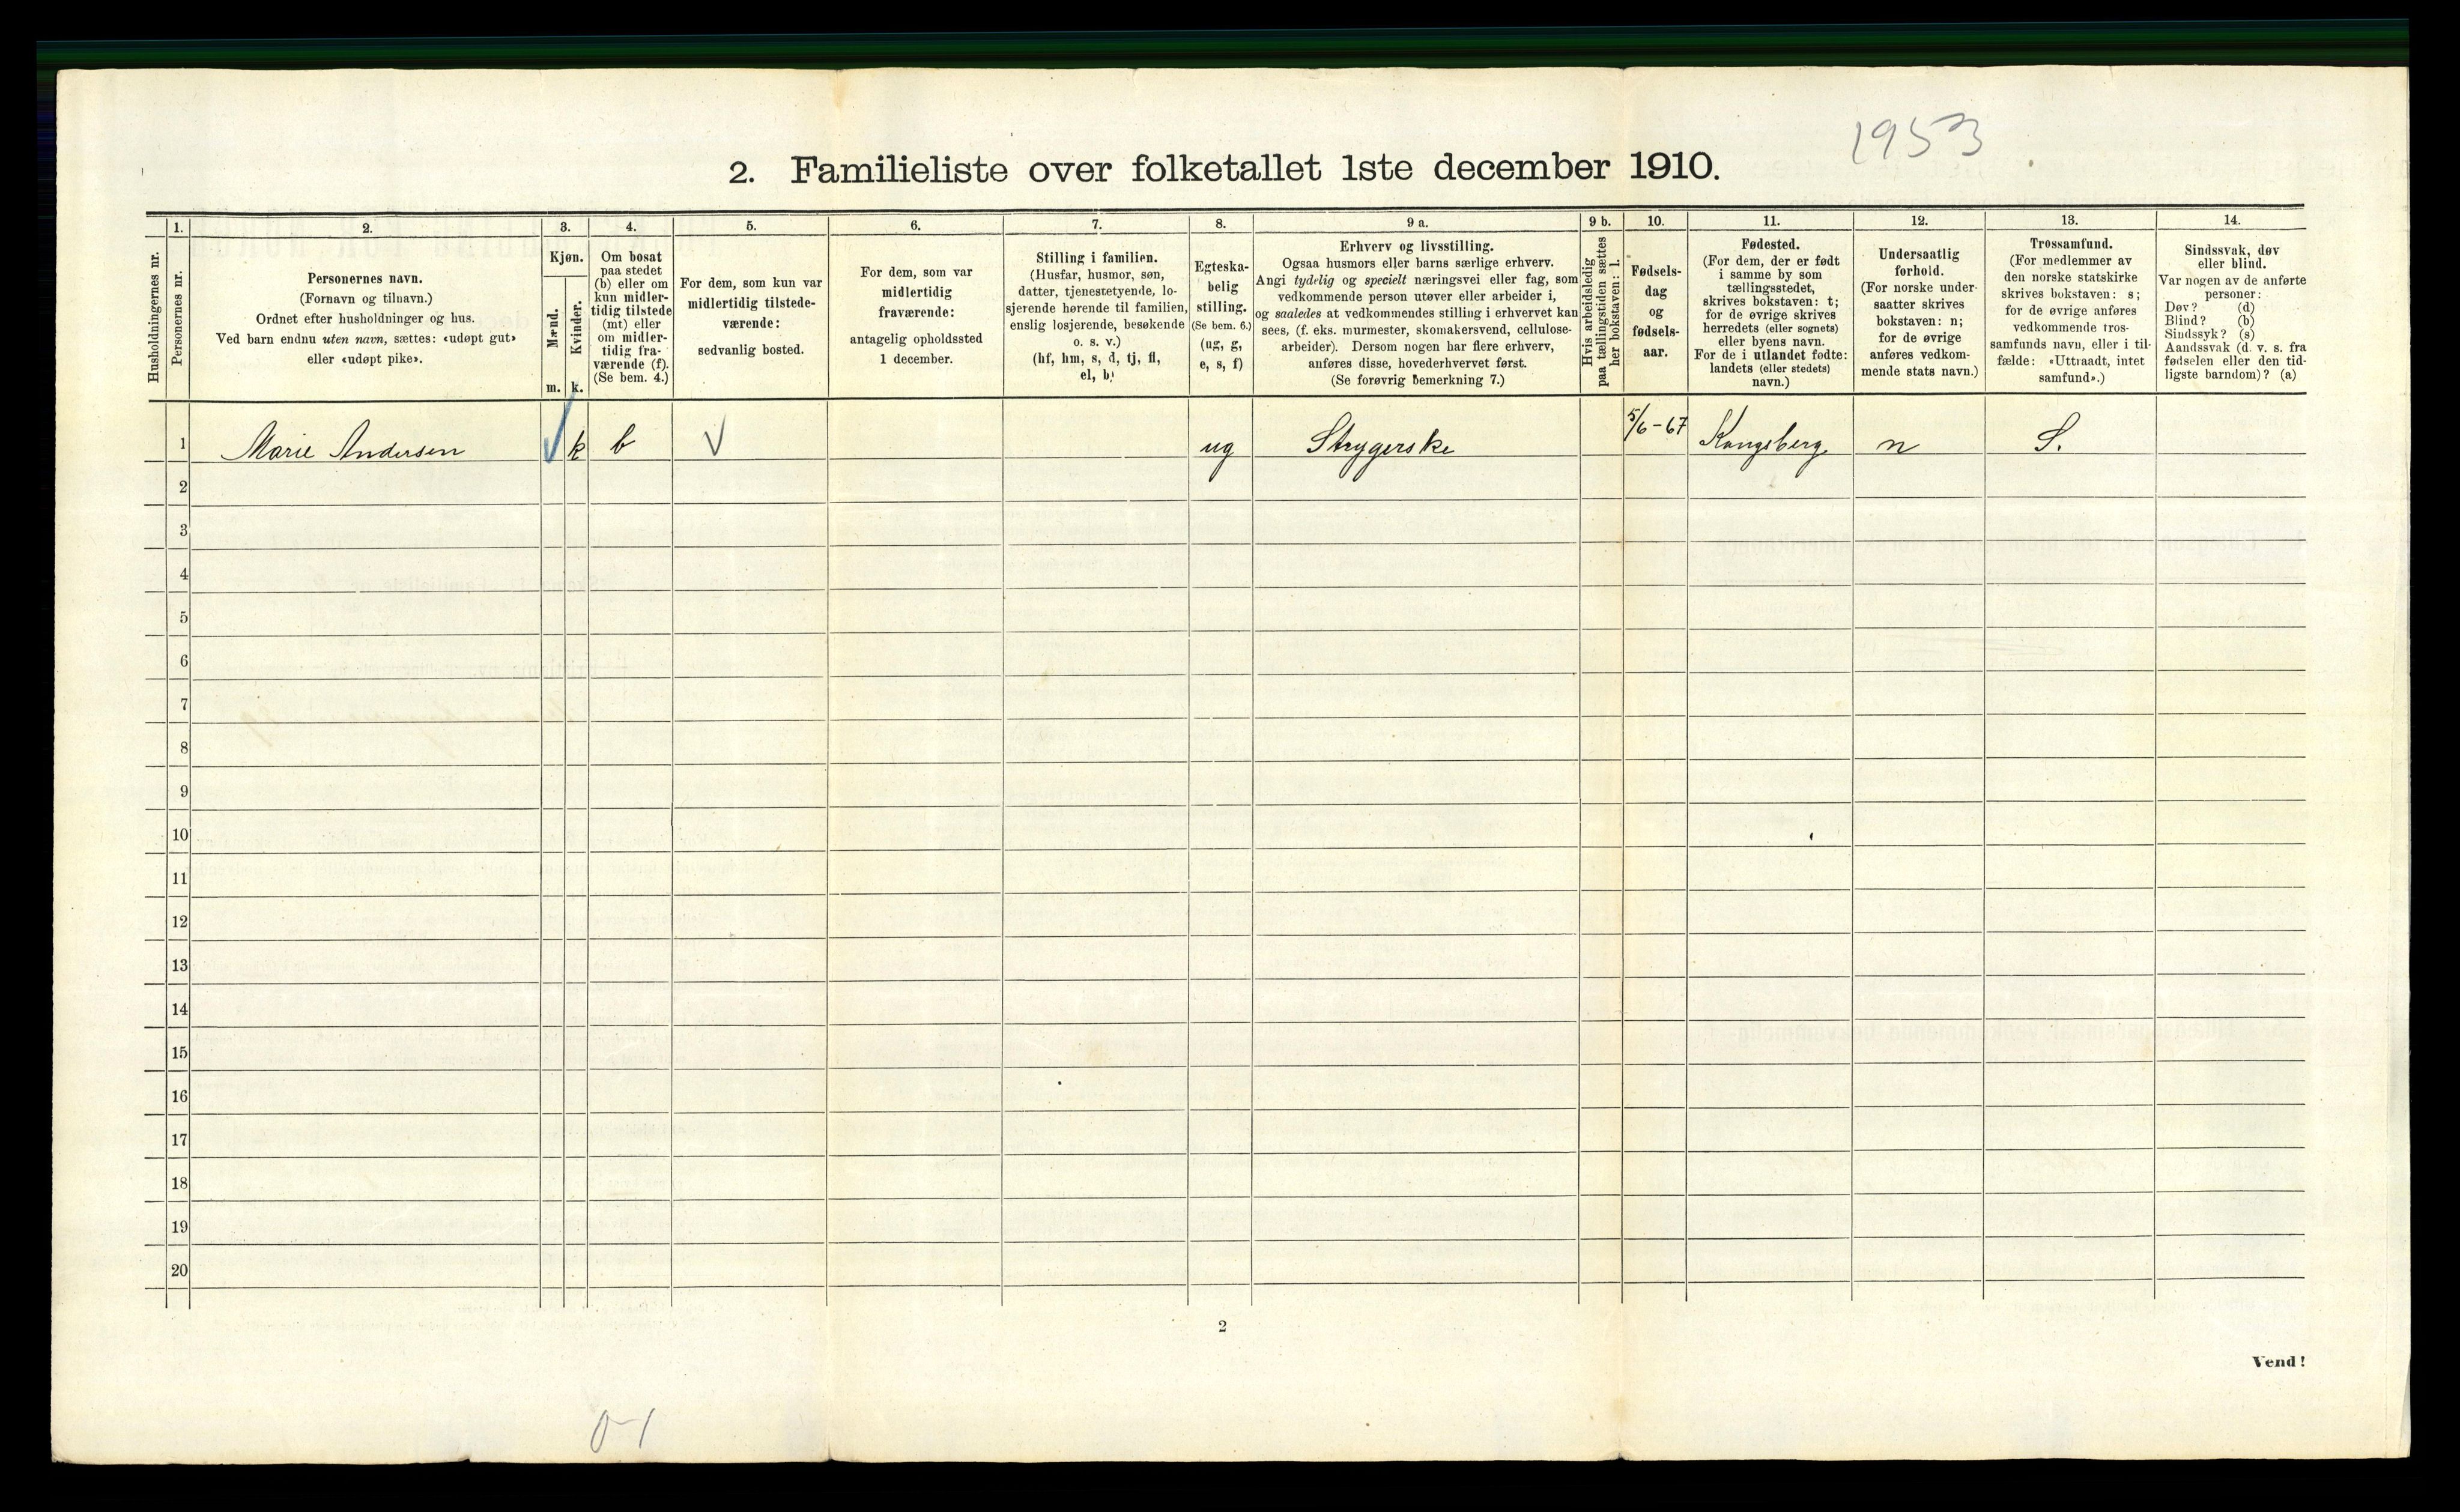 1953
2. Familieliste over folketallet 1ste december 1910.
1. 2. 3. 4. 5. 6. 7. 8. 9 a. 9 b. 10. 11. 12. 13. 14.
Husholdningernes nr.
Personernes nr.
Personernes navn.
(Fornavn og tilnavn.)
Ordnet efter husholdninger og hus.
Ved barn endnu uten navn, sættes: «udøpt gut»
eller «udøpt pike».
Kjøn.
Mænd.
Kvinder.
m. k.
Om bosat
paa stedet
(b) eller om
kun midler-
tidig tilstede
(mt) eller
om midler-
tidig fra-
værende (f).
(Se bem. 4.)
For dem, som kun var
midlertidig tilstede-
værende:
sedvanlig bosted.
For dem, som var
midlertidig
fraværende:
antagelig opholdssted
1 december.
Stilling i familien.
(Husfar, husmor, søn,
datter, tjenestetyende, lo-
sjerende hørende til familien,
enslig losjerende, besøkende
o. s. v.)
(hf, hm, s, d, tj, fl,
el, b)
Egteska-
belig
stilling.
(Se bem. 6.)
(ug, g,
e, s, f)
Erhverv og livsstilling.
Ogsaa husmors eller barns særlige erhverv.
Angi tydelig og specielt næringsvei eller fag, som
vedkommende person utøver eller arbeider i,
og saaledes at vedkommendes stilling i erhvervet kan
sees, (f. eks. murmester, skomakersvend, cellulose-
arbeider). Dersom nogen har flere erhverv,
anføres disse, hovederhvervet først.
(Se forøvrig bemerkning 7.)
Hvis arbeidsledig
paa tællingstiden sættes
her bokstaven: l.
Fødsels-
dag
og
fødsels-
aar.
Fødested.
(For dem, der er født
i samme by som
tællingsstedet,
skrives bokstaven: t;
for de øvrige skrives
herredets (eller sognets)
eller byens navn.
For de i utlandet fødte:
landets (eller stedets)
navn.)
Undersaatlig
forhold.
(For norske under-
saatter skrives
bokstaven: n;
for de øvrige
anføres vedkom-
mende stats navn.)
Trossamfund.
(For medlemmer av
den norske statskirke
skrives bokstaven: s;
for de øvrige anføres
vedkommende tros-
samfunds navn, eller i til-
fælde: «Uttraadt, intet
samfund».)
Sindssvak, døv
eller blind.
Var nogen av de anførte
personer:
Døv? (d)
Blind? (b)
Sindssyk? (s)
Aandssvak (d. v. s. fra
fødselen eller den tid-
ligste barndom)? (a)
1 Marie Andersen k b ug Strygerske 5/6-67 Kongsberg n S.
2
3
4
5
6
7
8
9
10
11
12
13
14
15
16
17
18
19
20
2
Vend!
0-1